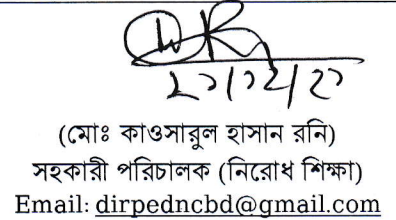 (মোঃ কাওসারুল হাসান রনি)
সহকারী পরিচালক (নিরোধ শিক্ষা)
Email: dirpedncbd@gmail.com